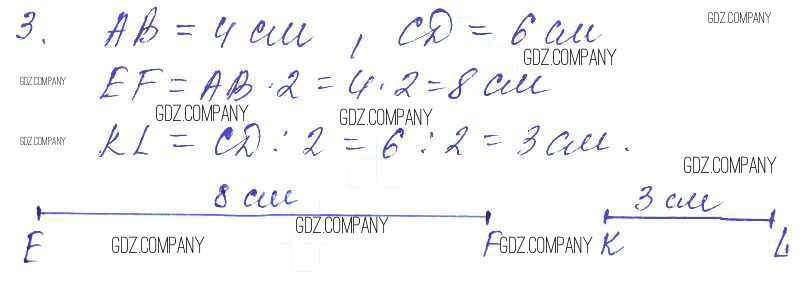 3. AB = 4 см, CD = 6 см GDZ.COMPANY
GDZ.COMPANY
GDZ.COMPANY EF = AB · 2 = 4 · 2 = 8 см
GDZ.COMPANY GDZ.COMPANY
GDZ.COMPANY KL = CD : 2 = 6 : 2 = 3 см.
GDZ.COMPANY
8 см 3 см
GDZ.COMPANY
E GDZ.COMPANY F GDZ.COMPANY K L